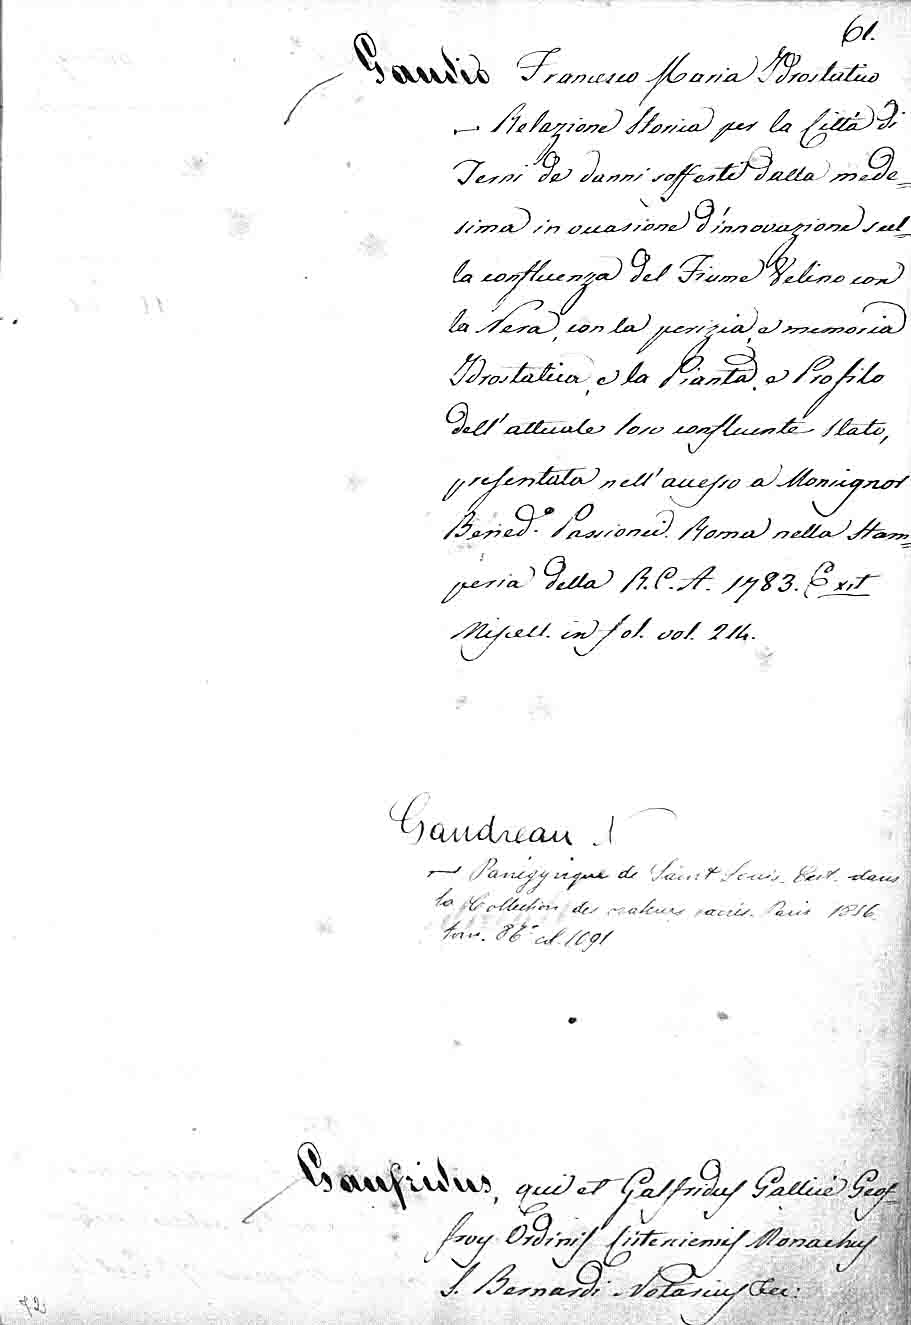 61.
Gaudio Francesco Maria Idrostatico
— Relazione Storica per la Città di
Terni de' danni sofferti dalla mede=
sima in occasione d'innovazione sul=
la confluenza del Fiume Velino con
la Nera, con la perizia, e memoria
Idrostatica, e la Pianta, e Profilo
dell'attuale loro confluente stato,
presentata nell'accesso a Monsignor
Bened.o Passionei. Roma nella Stam=
peria della R.C.A. 1783. Exit
Miscell. in fol. vol. 214.
Gaudreau
— Panégyrique de Saint Louis. Ext. dans
la Collection des orateurs sacrés. Paris 1856
tom. 86. col. 1091
Gaufridus, qui et Galfridus Gallicè Geof=
froy Ordinis Cisterciensis Monachus
S. Bernardi Notarius &c:
72